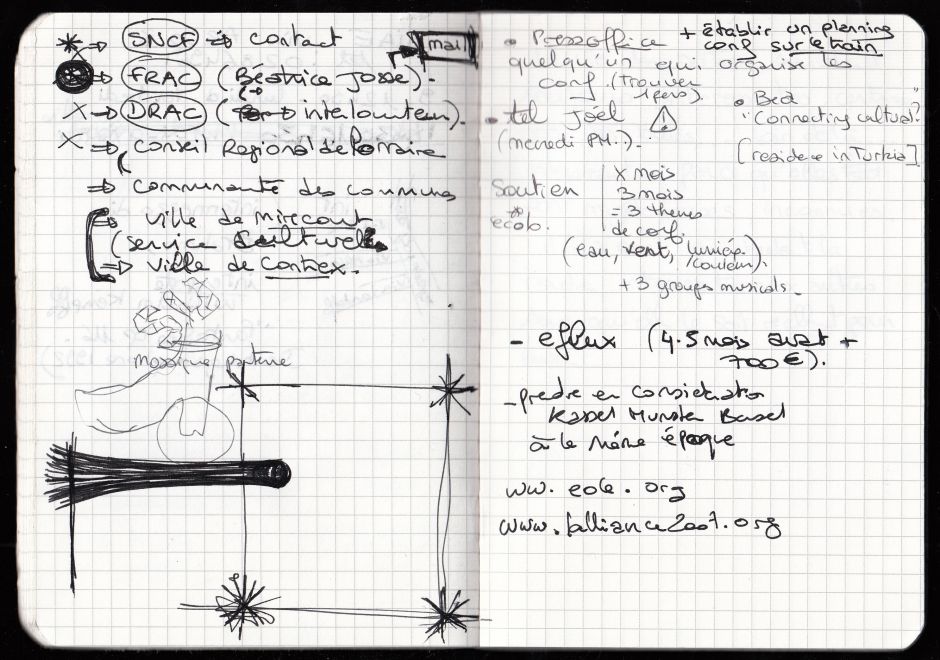 * → SNCF ⇒ contact
mail
→ FRAC (Béatrice Josse).
X → DRAC ( → interlocuteur).
X ⇒ Conseil Regional de Lorraine
⇒ communauté des communes
⇒ ville de mirecourt
(service culturel
⇒ ville de contrex.
mosaique
• Pressoffice
quelqu'un qui organise les
conf. (trouver
1 pers).
+ établir un planning
conf sur le train
• tel Joël ⚠
(mercredi PM..).
• Best
"Connecting cultural?"
[residence in Turkia]
Soutien
ecob.
x mois
3 mois
= 3 themes
de conf.
(eau, vent, lumière
/couleur).
+ 3 groupes musicals.
- eflux (4.5 mois avant +
700 €).
- predre en consideration
Kassel Munster Basel
à la même époque
ww. eole. org
www.lalliance2007.org